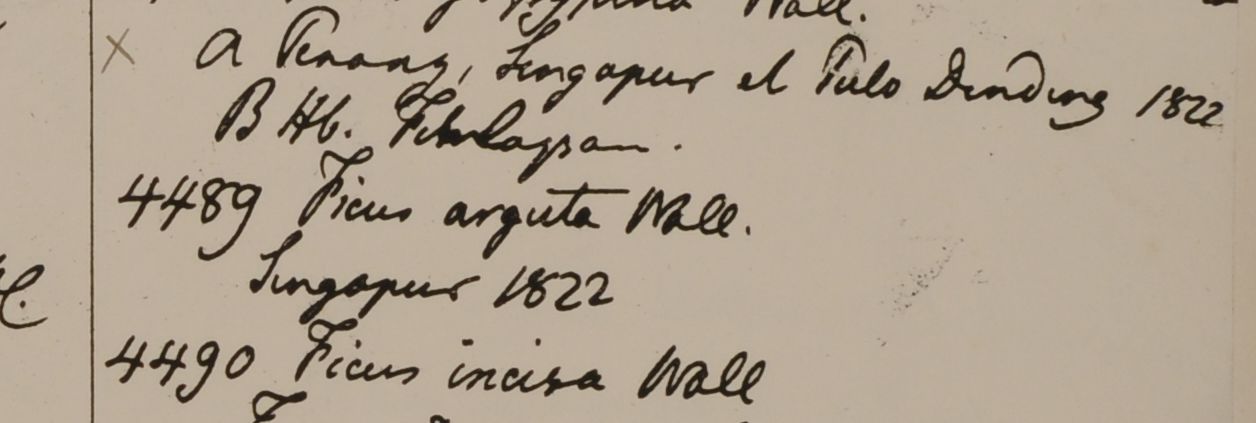 Wall.
× A Penang, Singapur et Pulo Dinding 1822
B Hb. Finlayson.
4489 Ficus arguta Wall.
Singapur 1822
4490 Ficus incisa Wall